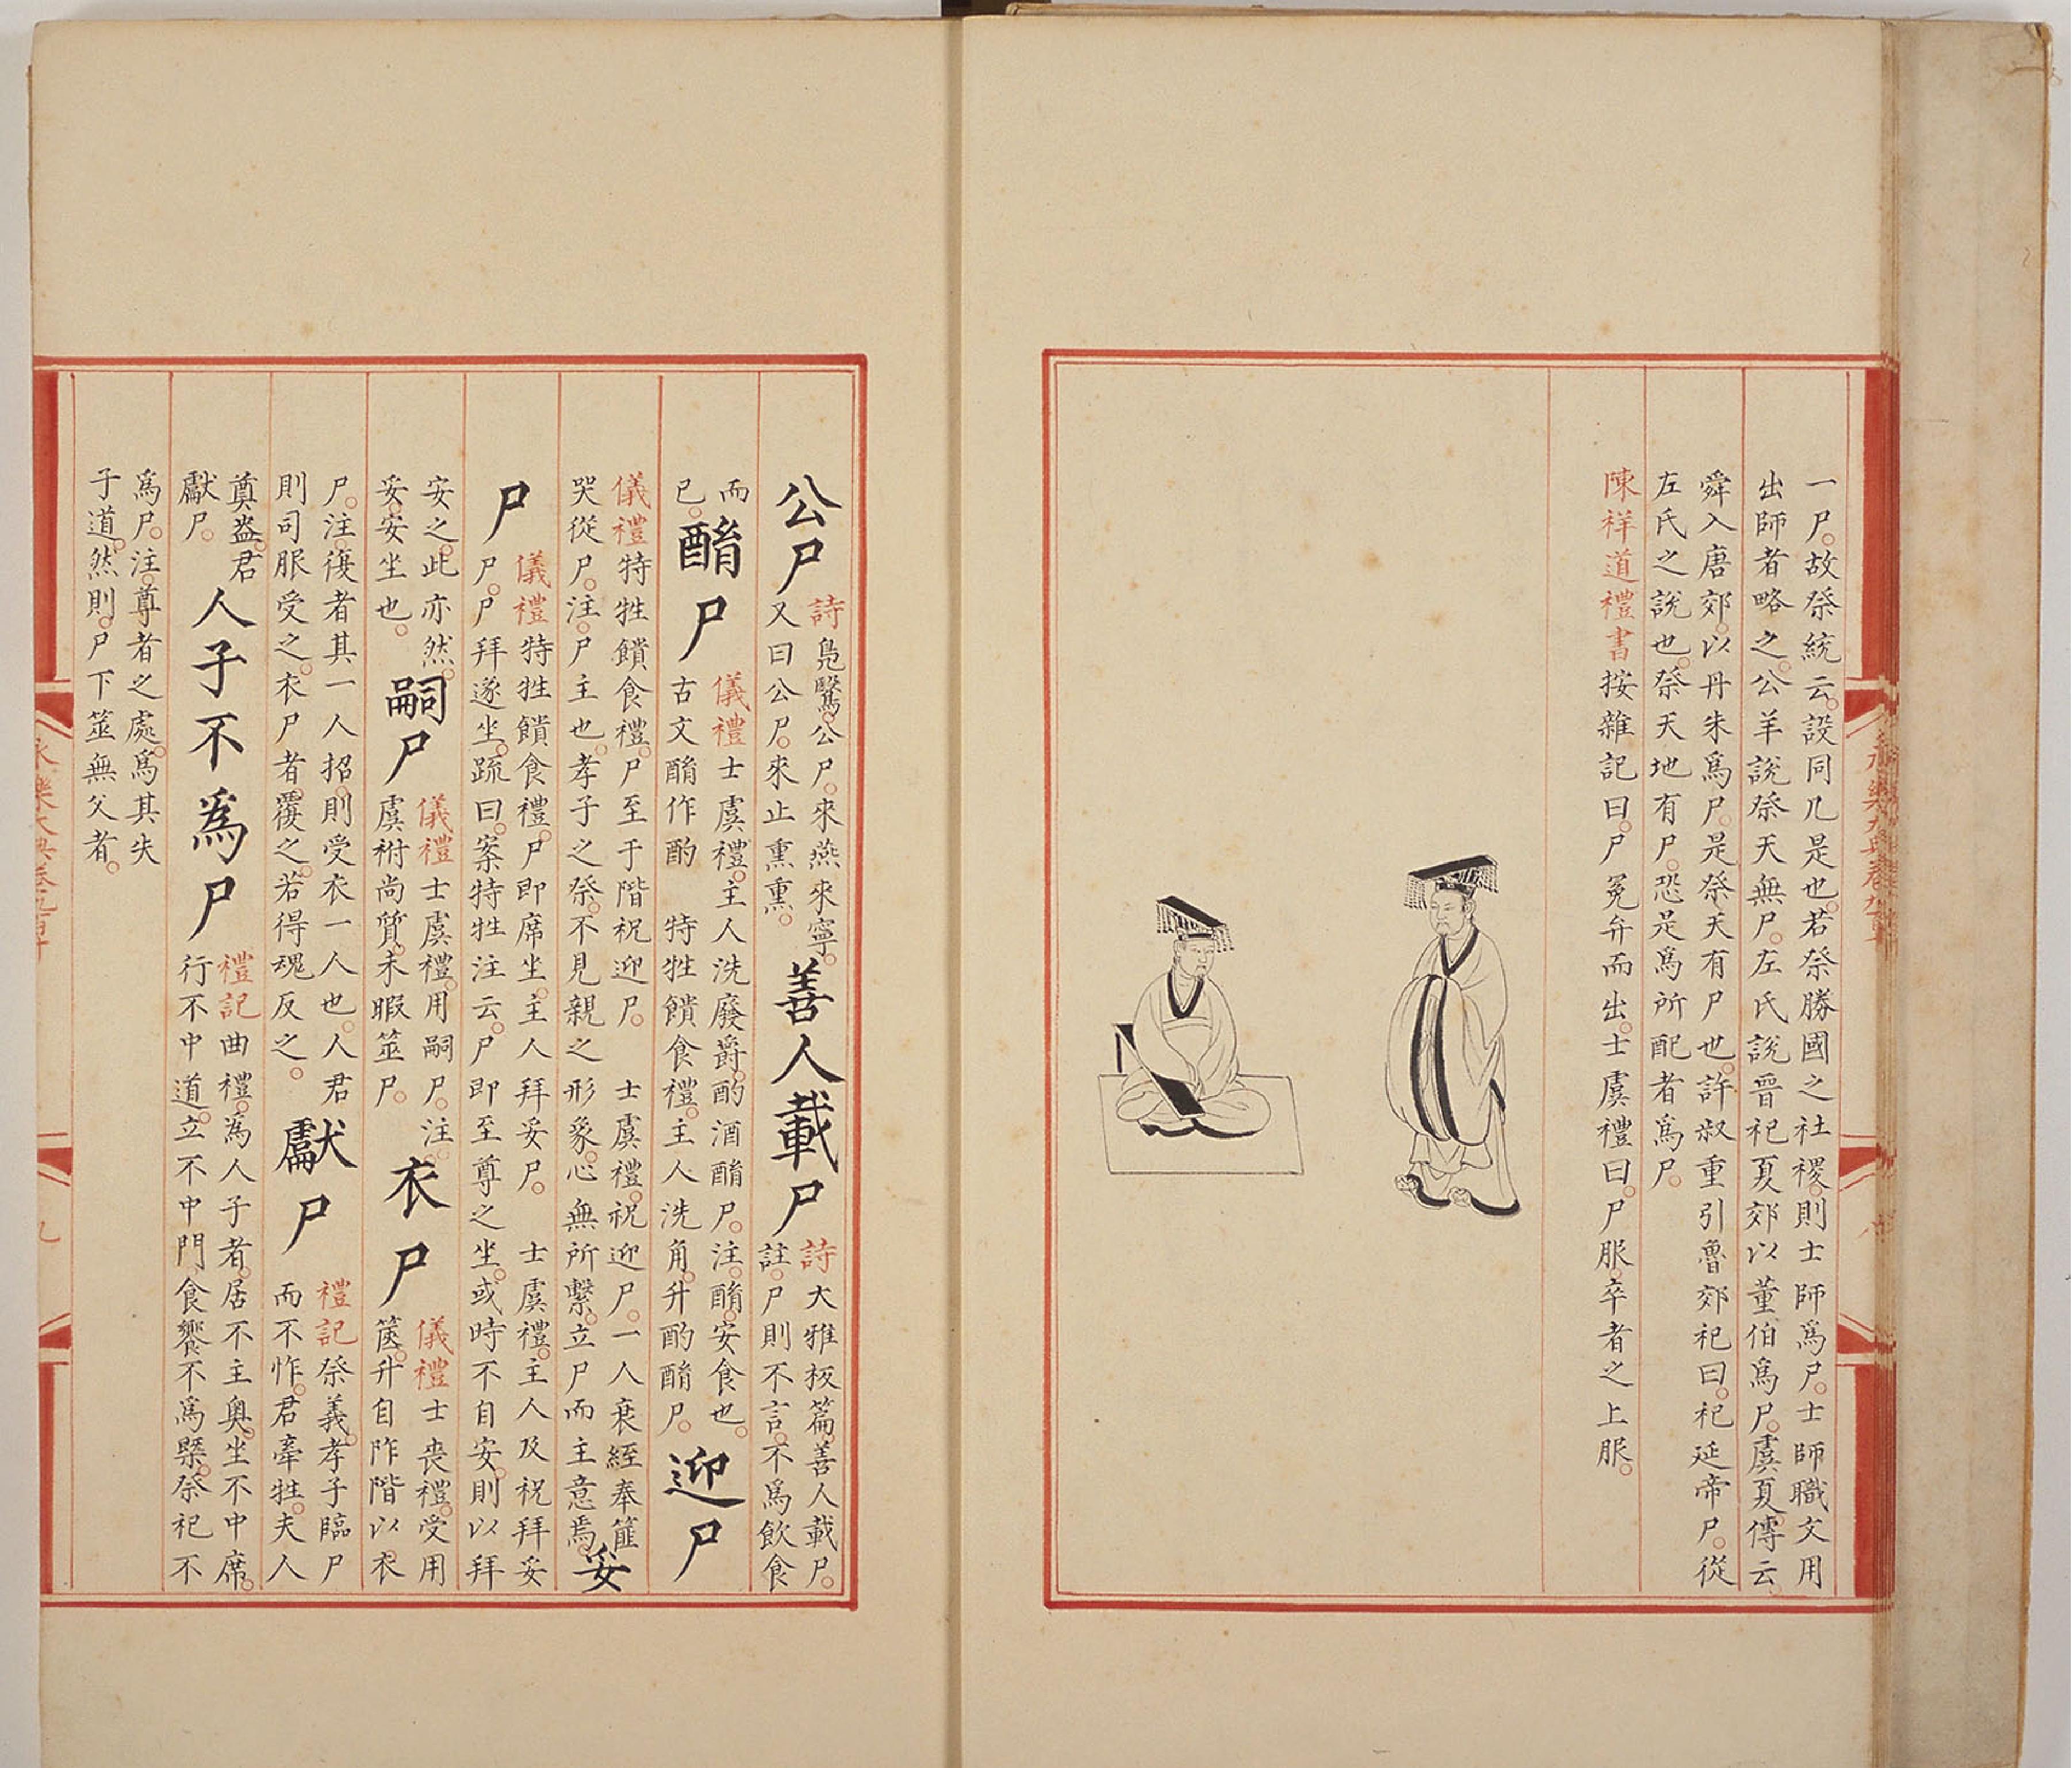 一尸故祭統云設同几是也若祭勝國之社稷則士師爲尸士師職文用
出師者略之公羊說祭天無尸左氏說晉祀夏郊以董伯爲尸虞夏傳云
舜入唐郊以丹朱爲尸是祭天有尸也許叔重引魯郊祀曰祀延帝尸從
左氏之說也祭天地有尸恐是爲所配者爲尸
陳祥道禮書按雜記曰尸冕弁而出士虞禮曰尸服卒者之上服
公尸
詩鳧鷖公尸來燕來寧
又曰公尸來止熏熏
善人載尸
詩大雅板篇善人載尸
註尸則不言不爲飲食
而
已
酳尸
儀禮士虞禮主人洗廢爵酌酒酳尸注酳安食也
古文酳作酌 特牲饋食禮主人洗角升酌酳尸
迎尸
儀禮特牲饋食禮尸至于階祝迎尸 士虞禮祝迎尸一人衰絰奉篚
哭從尸注尸主也孝子之祭不見親之形象心無所繫立尸而主意焉
妥尸
儀禮特牲饋食禮尸即席坐主人拜妥尸 士虞禮主人及祝拜妥
尸尸拜遂坐疏曰案特牲注云尸即至尊之坐或時不自安則以拜
安之此亦然
妥安坐也
嗣尸
儀禮士虞禮用嗣尸注
虞祔尚質未暇筮尸
衣尸
儀禮士喪禮受用
篋升自阼階以衣
尸注復者其一人招則受衣一人也人君
則司服受之衣尸者覆之若得魂反之
獻尸
禮記祭義孝子臨尸
而不怍君牽牲夫人
奠盎君
獻尸
人子不爲尸
禮記曲禮爲人子者居不主奧坐不中席
行不中道立不中門食饗不爲槩祭祀不
爲尸注尊者之處爲其失
子道然則尸下筮無父者